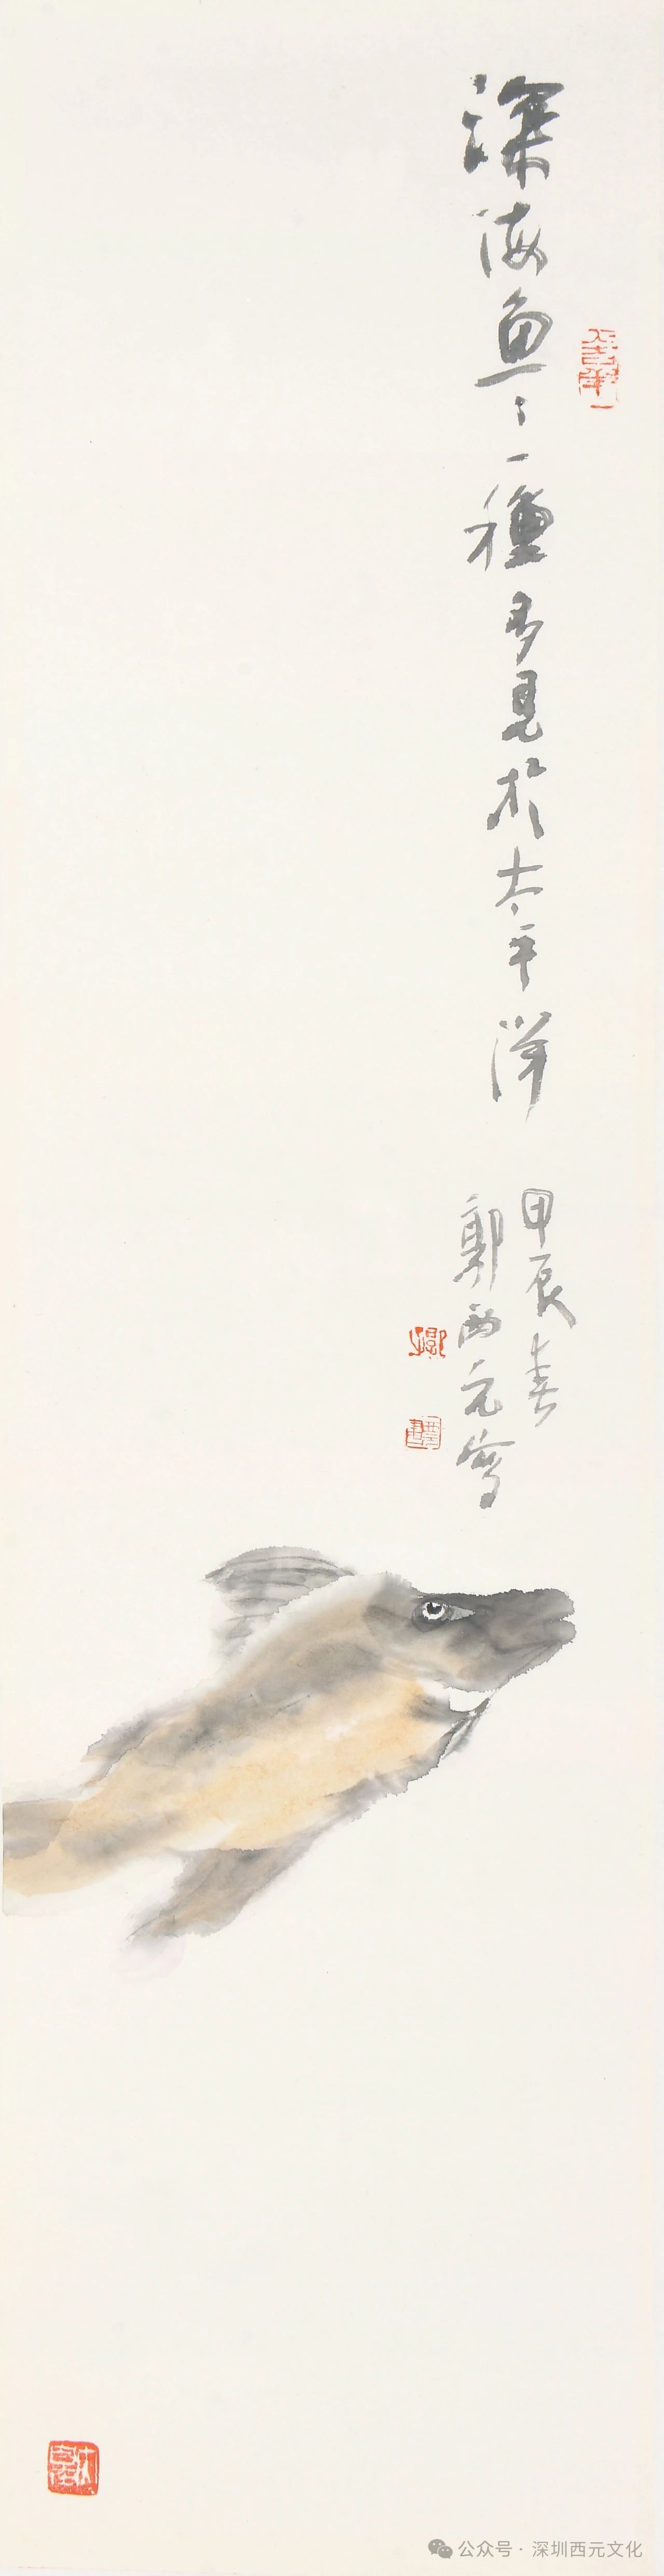 深海魚之一種多見於太平洋
甲辰春
郭西元寫
公众号·深圳西元文化